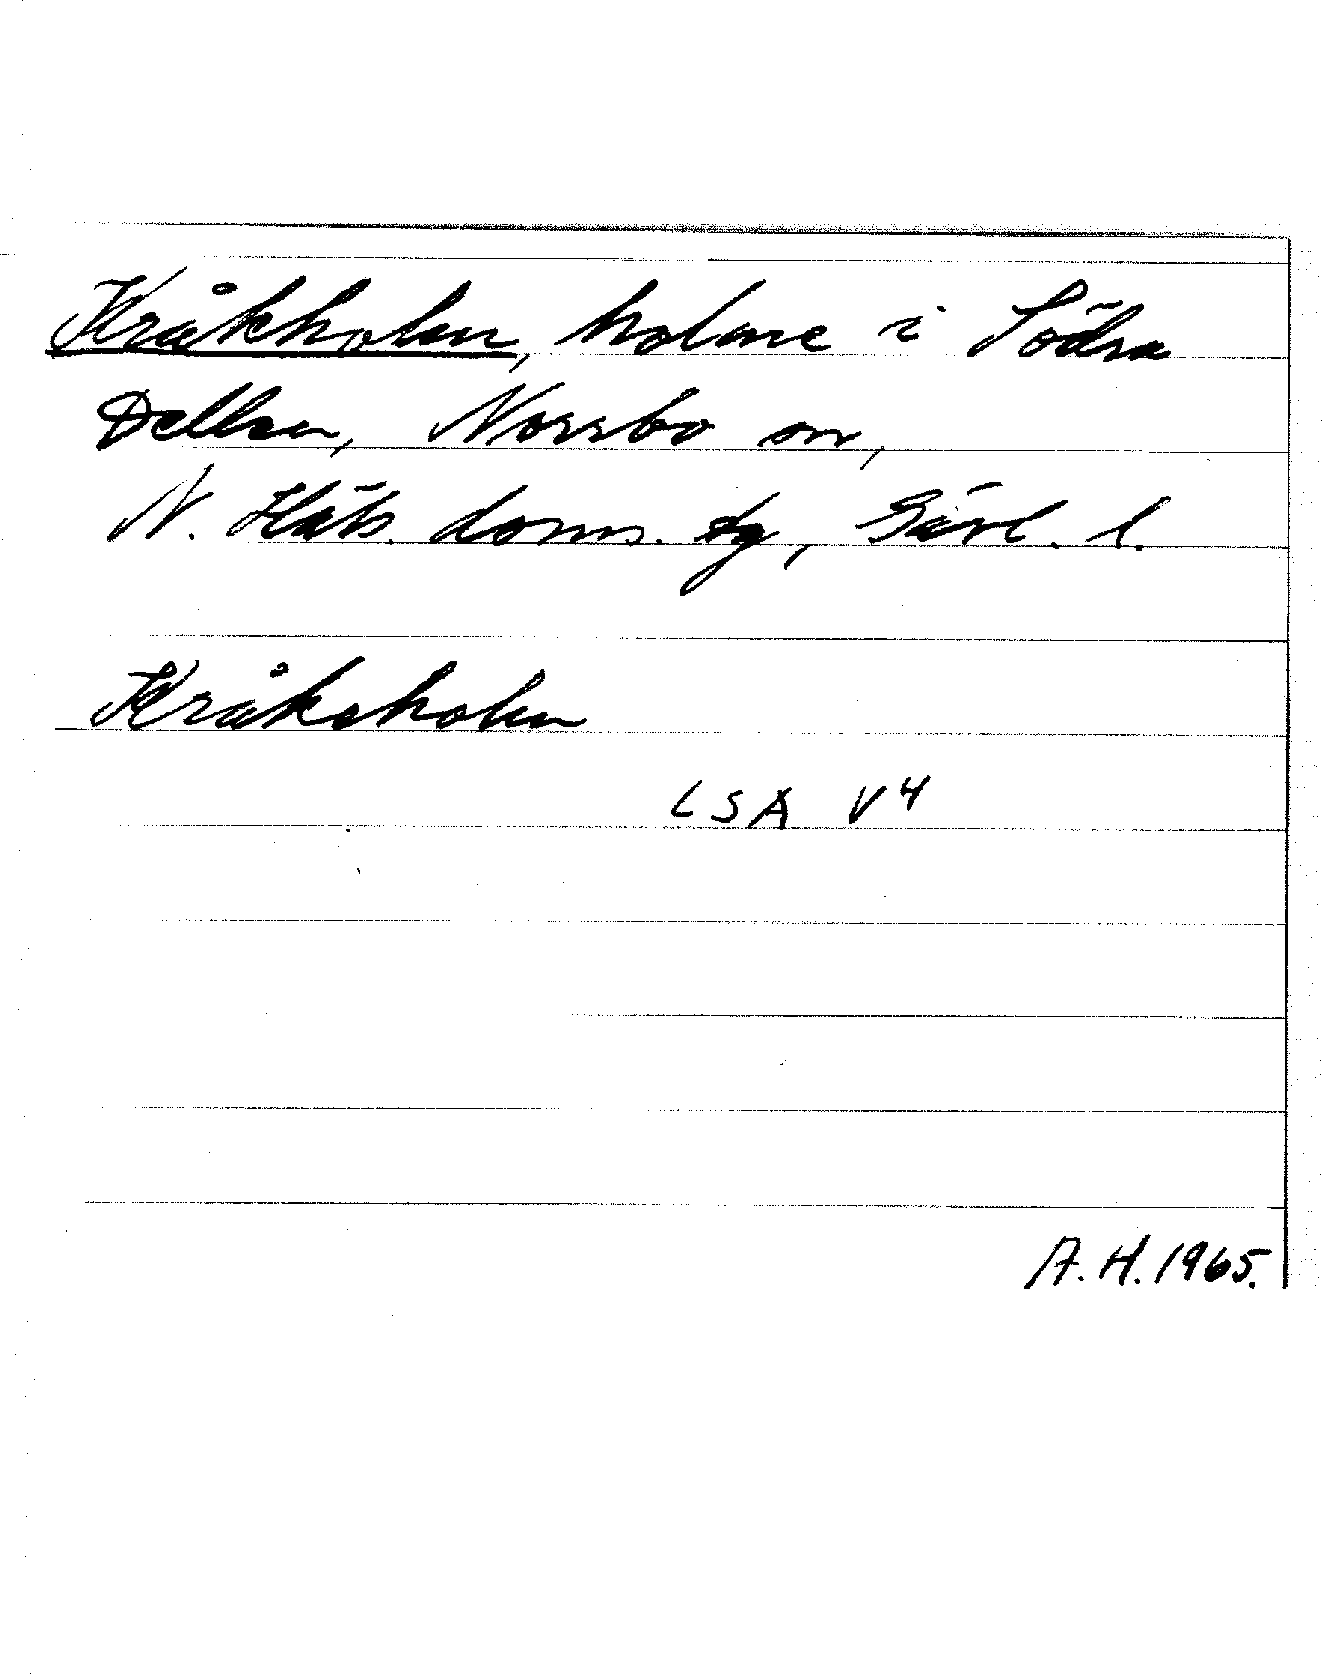 Kråkholm, holme i Södra
Dellen, Norrbo sn,
N. Häls. doms. tg, Gävl. l.
Kråkeholm
LSA V4
A.H. 1965.